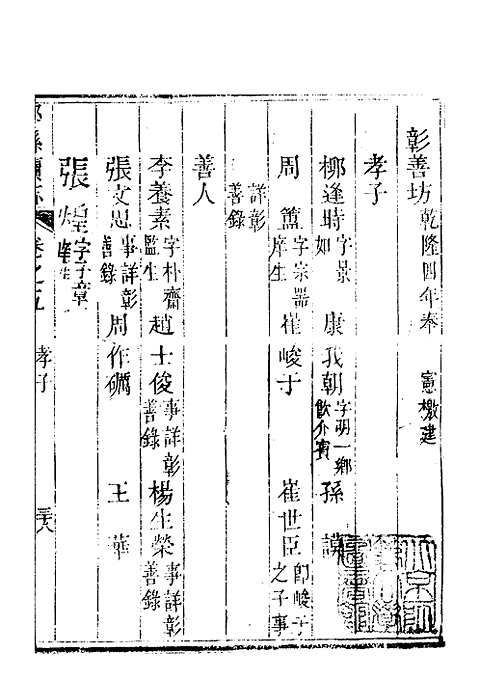 彰善坊乾隆四年奉 憲檄建
孝子
柳逢時字景如 康我朝字明一鄉飲介賓 孫 謨
周 簠字宗器庠生 崔峻于 崔世臣即峻于之子事
詳彰善錄
善人
李養素字朴齋監生 趙士俊事詳彰善錄 楊生榮事詳彰善錄
張文思事詳彰善錄 周作礪 王 華
張 煌字子章
縣續志 卷之五 孝子 三八